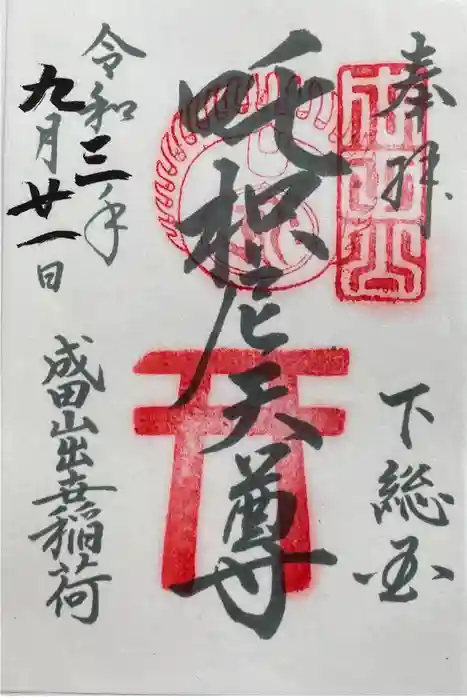 奉拝
下総国
吒枳尼天尊
令和三年
九月廿一日
成田山出世稲荷